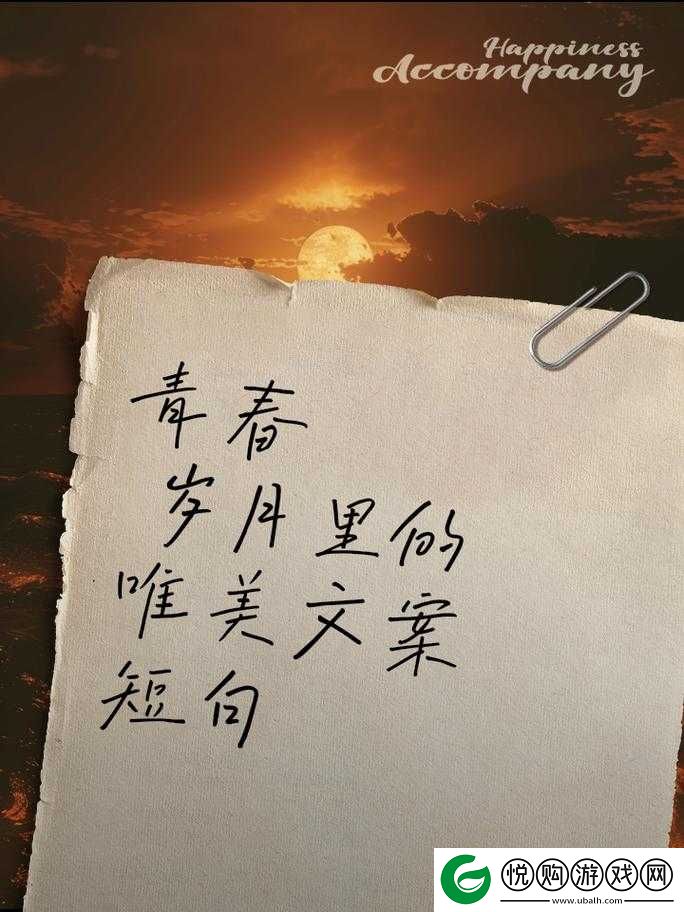 Happiness
Accompany
青春
岁月里的
唯美文案
短句
悦购游戏网
www.ubalh.com